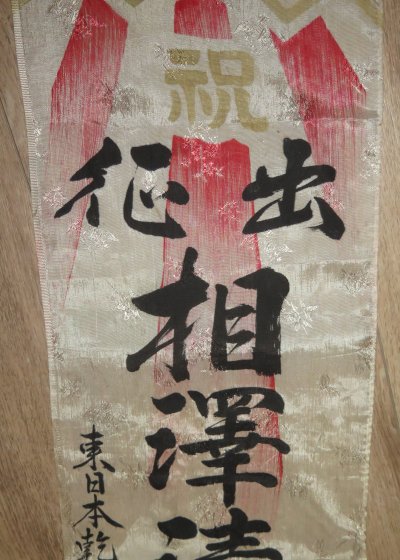 祝
出征
相澤清
東日本乾